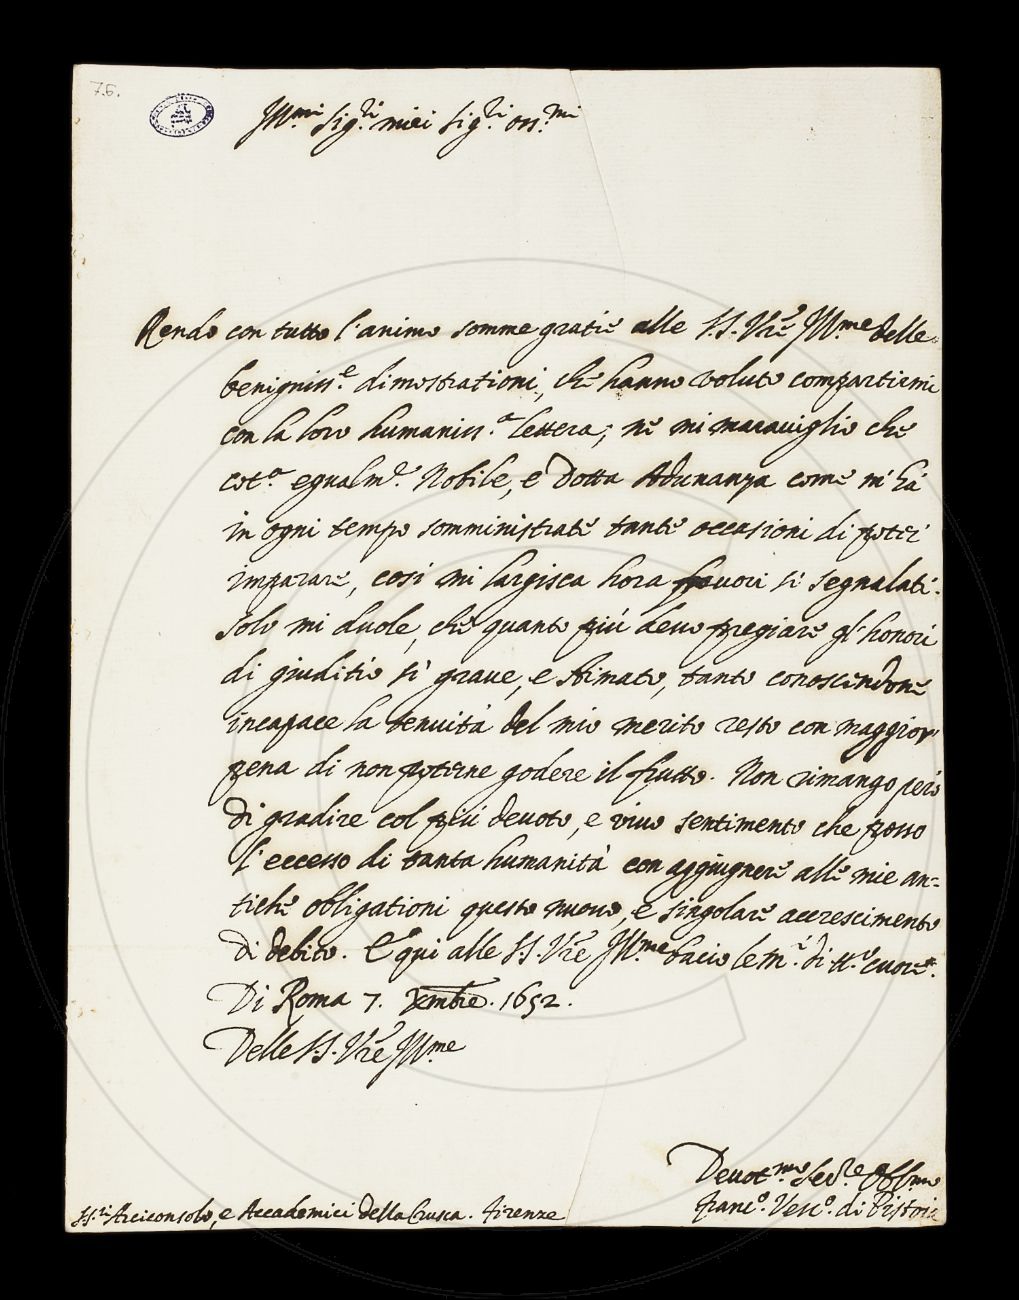 76.
Ill.mi Sig.ri miei Sig.ri oss.mi
Rendo con tutto l'animo somme gratie alle SS. Vre Ill.me delle
beniguiss.e dimostrationi, che hanno voluto compartirmi
con la loro humaniss.a lettera; nè mi marauiglio che
cot.a egualm.te Nobile, e Dotta Adunanza come m'há
in ogni tempo somministrate tante occasioni di poter
imparare, cosi mi largisca hora fauori si segnalati.
Solo mi duole, che quanto piú deuo pregiare gl'honori
di giuditio si graue, e stimato, tanto conoscendone
incapace la tenuitá del mio merito resto con maggior
pena di non poterne godere il frutto. Non rimango però
di gradire col piú deuoto, e viuo sentimento che posso
l'eccesso di tanta humanitá con aggiugnere alle mie an=
tiche obligationi questo nuouo, e singolare accrescimento
di debito. E qui alle SS. Vre Ill.me bacio le m.i di tt.o cuore.
Di Roma 7. Xmbre. 1652.
Delle SS. Vre Ill.me
Deuot.mo Ser.re Obl.mo
Franc.o Vesc.o di Pistoia
SS.ri Arciconsolo, e Accademici della Crusca. Firenze